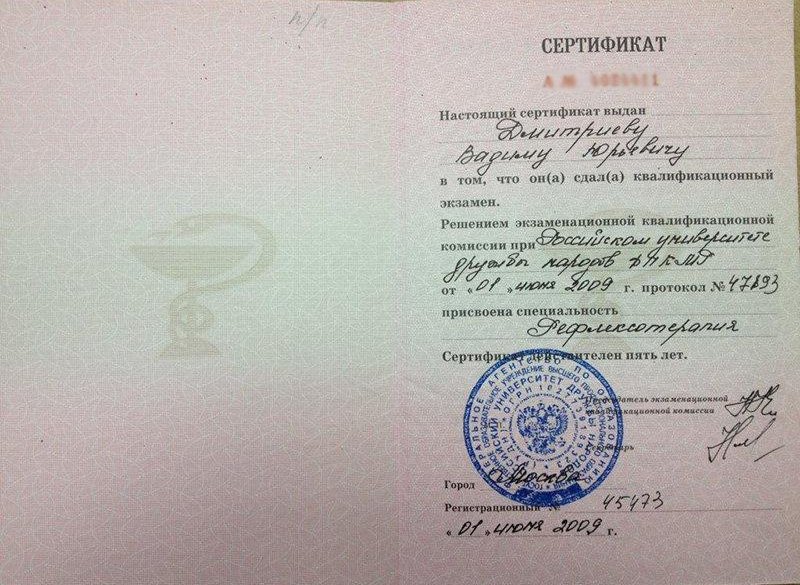 п/п
СЕРТИФИКАТ
А №
Настоящий сертификат выдан
Дмитриеву
Вадиму Юрьевичу
в том, что он(а) сдал(а) квалификационный
экзамен.
Решением экзаменационной квалификационной
комиссии при Российском университете
дружбы народов ФПКМР
от « 01 » июня 2009 г. протокол №
присвоена специальность
Рефлексотерапия
Сертификат действителен пять лет.
Председатель экзаменационной
квалификационной комиссии
Секретарь
Город Москва
Регистрационный № 45473
« 01 » июня 2009 г.